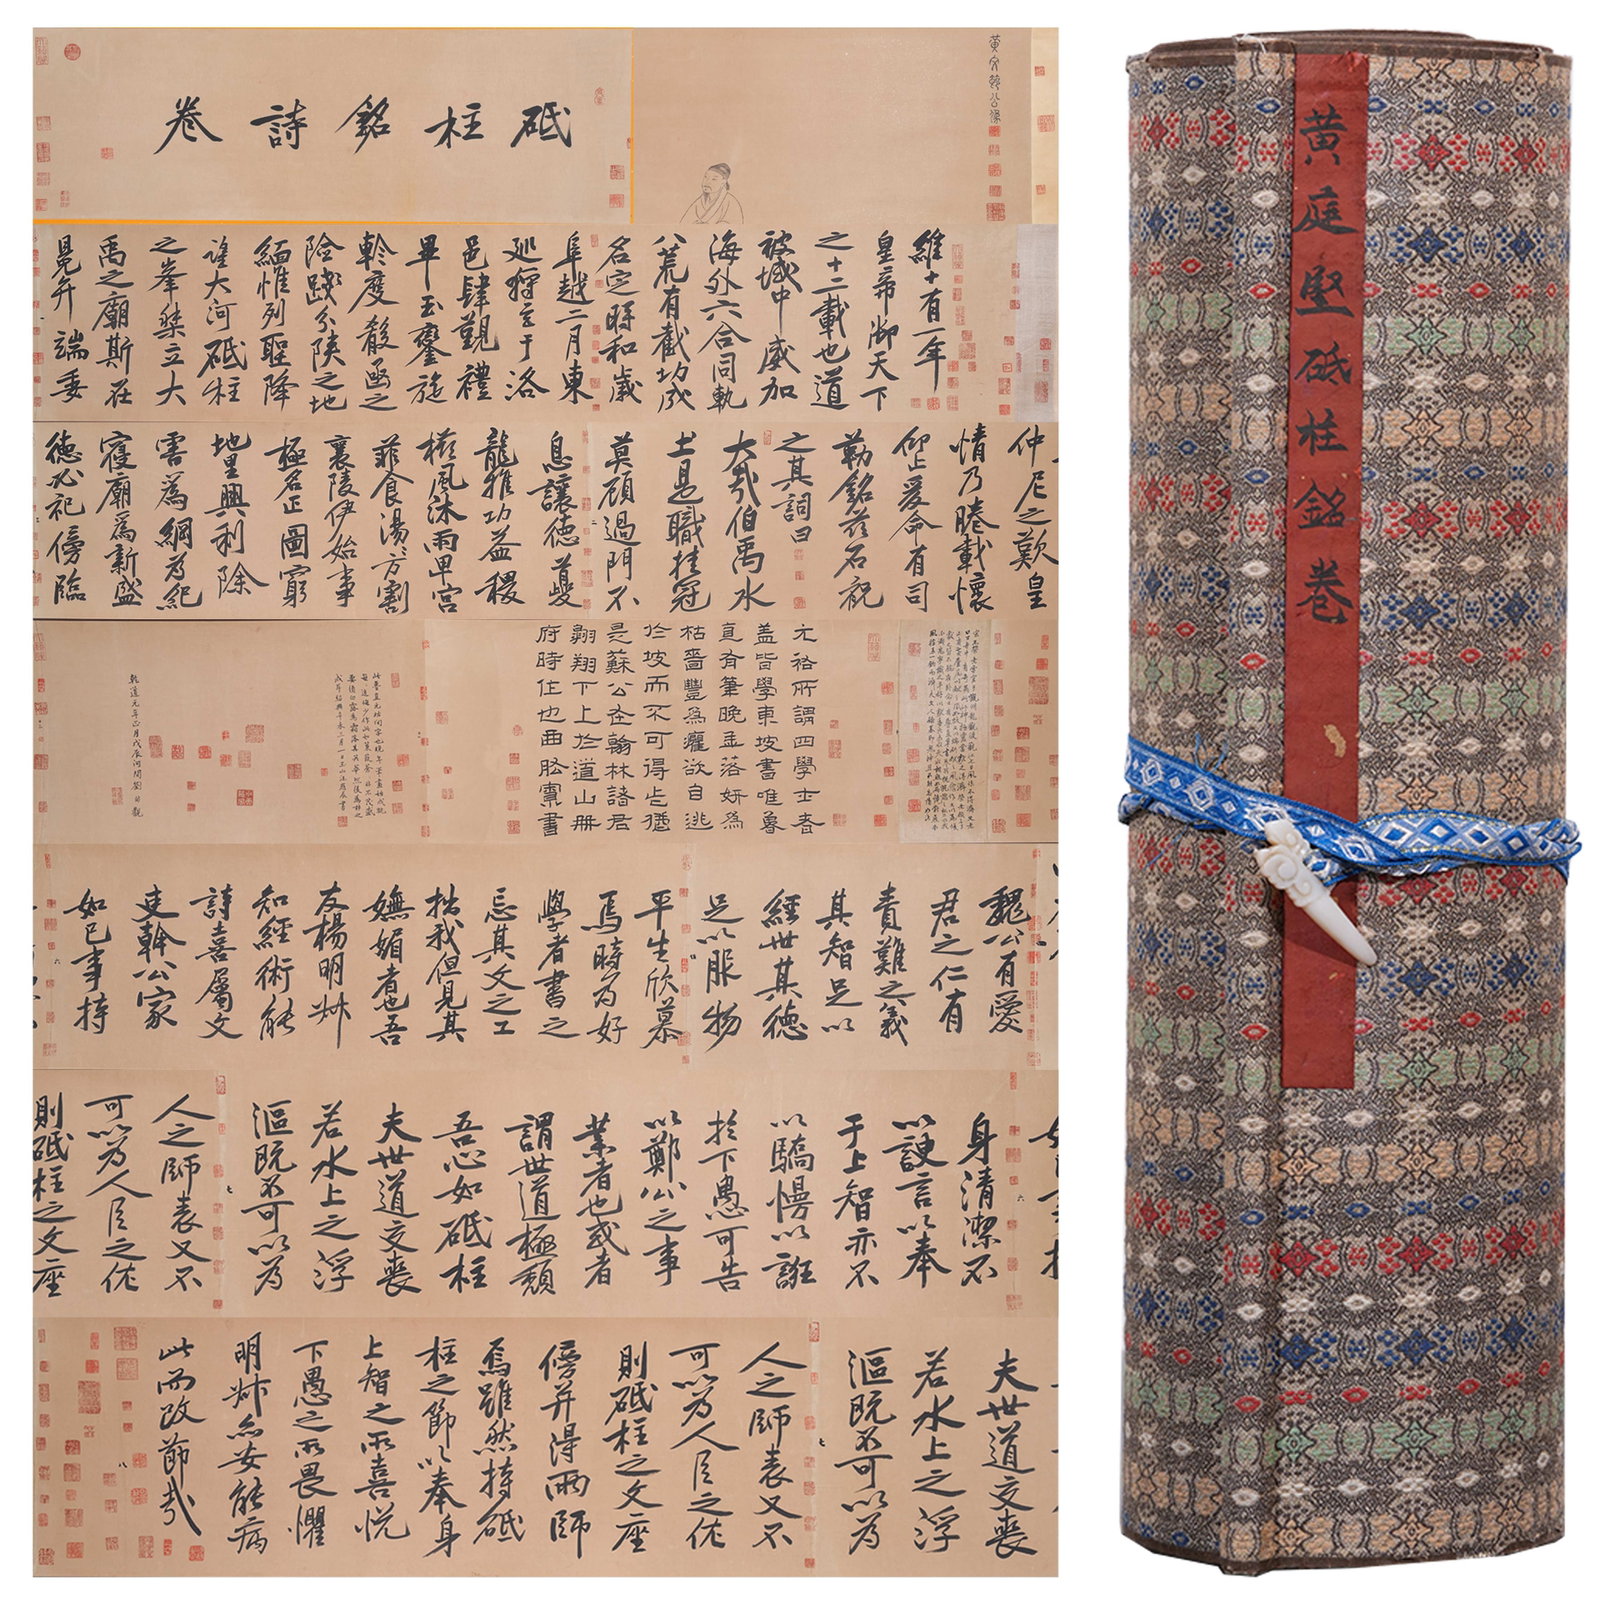 砥柱銘詩卷
黃文節公像
維十有一年
皇帝御天下
之十二載也道
被域中威加
海外六合同軌
八荒有截功成
名定時和歲
阜越二月東
巡狩至于洛
邑肆覲禮
畢玉鑾旋
軨度殽函之
險踐分陝之地
緬惟列聖降
望大河砥柱
之峯桀立大
禹之廟斯在
晃弁端委
仲尼之歎皇
情乃睠載懷
仰止爰命有司
勒銘茲石祝
之其詞曰
大哉伯禹水
土是職挂冠
莫顧過門不
息讓德夔
龍推功益稷
櫛風沐雨卑宮
菲食湯〻方割
襄陵伊始事
極名正圖窮
地里興利除
害為綱為紀
寢廟為新盛
德必祀傍臨
元祐所謂四學士者
蓋皆學東坡書唯魯
直有筆晚益落妍為
枯嗇豐為癯欲自逃
於坡而不可得也猶
是蘇公在翰林諸君
翱翔下上於道山冊
府時佳也曲肱寮書
乾道元年正月戊辰河間劉昉觀
魏公有愛
君之仁有
責難之義
其智足以
經世其德
足以服物
平生欣慕
焉時為好
學者書之
忘其文之工
拙我但見其
嫵媚者也吾
友楊明叔
知經術能
詩喜屬文
吏幹公家
如己事持
身清潔不
以諛言以奉
于上智亦不
以驕慢以誑
於下愚可告
以鄭公之事
業者也或者
謂世道極頹
吾心如砥柱
夫世道交喪
若水上之浮
漚既不可以為
人之師表又不
可以為人臣之佐
則砥柱之文座
夫世道交喪
若水上之浮
漚既不可以為
人之師表又不
可以為人臣之佐
則砥柱之文座
傍并得兩師
焉雖然持砥
柱之節以奉身
上智之所喜悅
下愚之所畏懼
明叔亦安能病
此而改節哉
黃庭堅砥柱銘卷